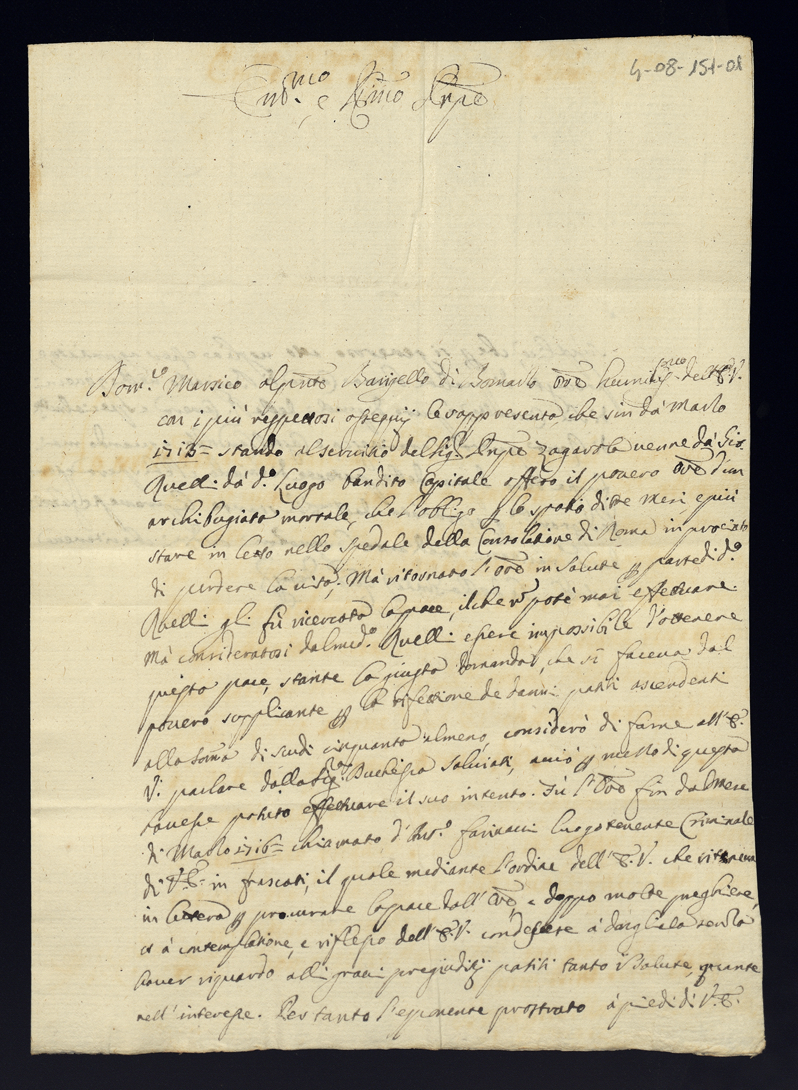 4-08-151-01
Em.mo e R.mo Prñpe
Dom.co Marsico al pñte Barigello di Bomarzo Ore humiliss.mo dell'E.V.
con i più rispettosi ossequij le rappresenta, che sin da Marzo
1715 stando al servitio del Sig.r Prñpe Zagarola venne da Gio:
Quelli da d.o Luogo bandito Capitale offeso il povero Ore d'un
archibugiata mortale, che l'obligò p lo spatio di tre mesi e più
stare in letto nello spedale della Consolatione di Roma in procinto
di perdere la vita; Mà ritornato l'Ore in salute p parte di d.o
Quelli gli fù ricercata la pace, il che n potè mai effettuare
Mà consideratosi dal med.o Quelli essere impossibile l'ottenere
questa pace, stante la giusta domanda, che si faceva dal
povero supplicante p la rifettione de danni patiti ascendenti
alla soma di scudi cinquanta almeno, considerò di farne all'E.
V. parlare dalla Sig.ra Duchessa Salviati, acciò p mezzo di questa
havesse potuto effettuare il suo intento. Fù l'Ore fin dal Mese
di Marzo 1716 chiamato d'Ant.o Farinacci luogotenente Criminale
di V.E. in frascati, il quale mediante l'ordine dell'E.V. che riteneva
in lettera p procurare la pace dall'Ore, e doppo molte preghiere,
et à contemplatione, e riflesso dell'E.V. condescese à dargliela senza
haver riguardo alli gravi pregiuditij patiti tanto i Salute, quante
nell'interesse. Per tanto l'esponente prostrato à piedi di V.E.